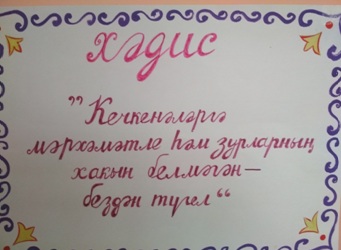 хәдис
"Кечкенәләргә
мәрхәмәтле һәм зурларның
хакын белмәгән—
бездән түгел"